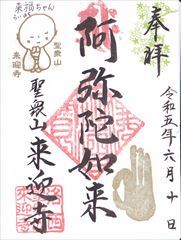 奉拝
令和五年六月十日
阿弥陀如来
聖衆山 来迎寺
来福ちゃん
らいふく
聖衆山
来迎寺